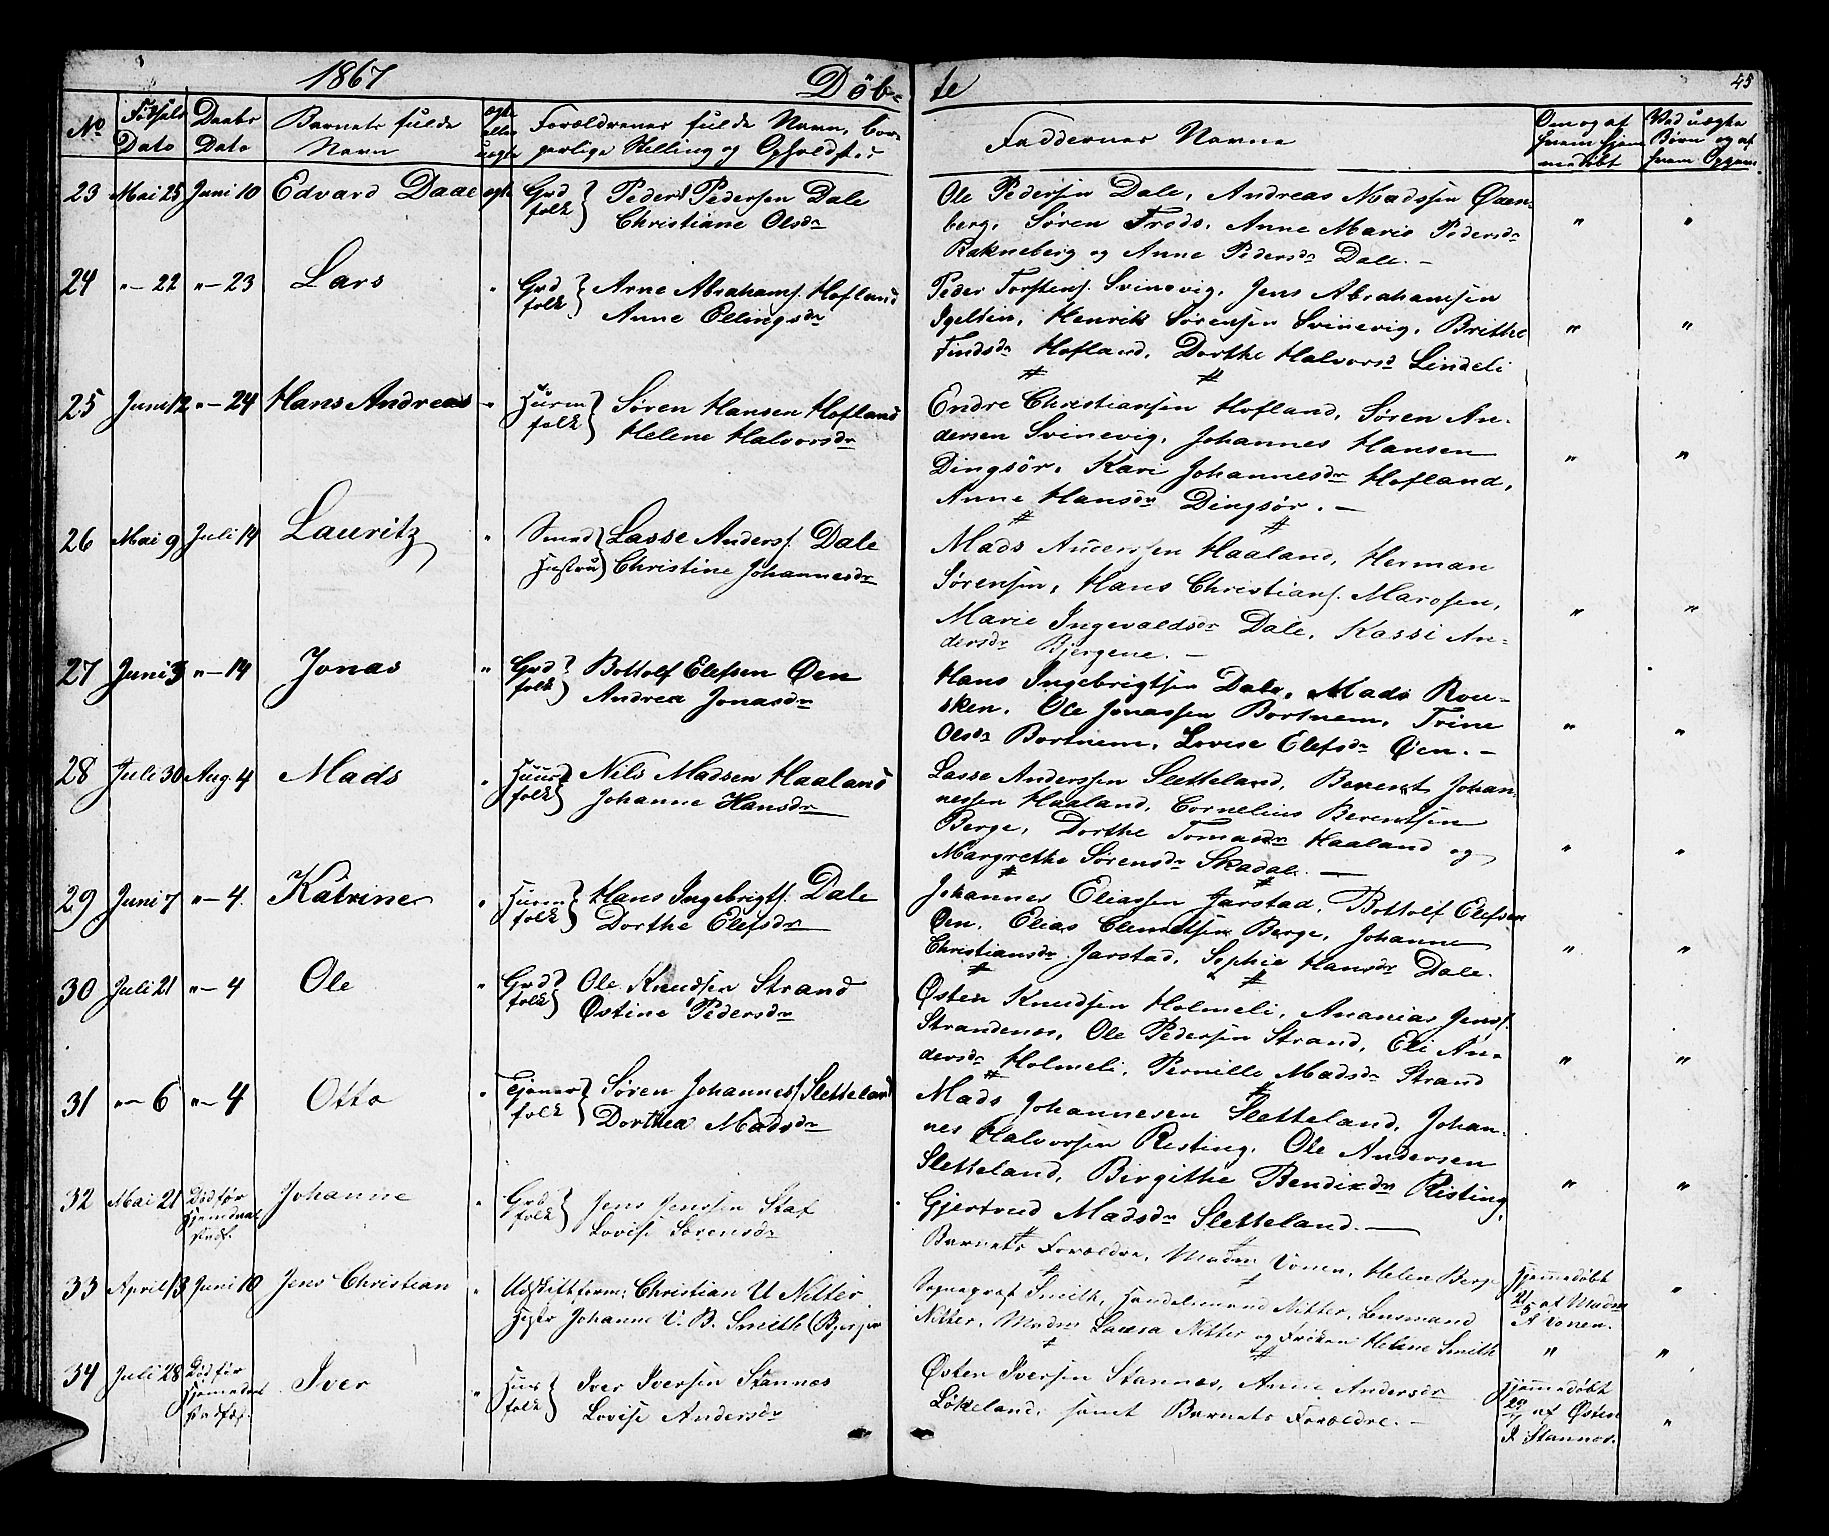 1867 Döb- te 45
No Fødsels Dato Daabs Dato Barnets fulde Navn ægte eller uægte Forældrenes fulde Navn, bor-
gerlige Stilling og Opholdst. Faddernes Navne Om og af hvem hjem-
medøbt Ved uægte Børn og af hvem Opgivn.
23 Mai 25 Juni 10 Edvard Daae ægte Grd folk Peder Pedersen Dale
Christiane Olsdr
Ole Pedersen Dale, Andreas Madssen Øren-
berg, Søren Frods, Anne Marie Pedersdr
Rakneberg og Anne Pedersdr Dale. — " "
24 " — 22 " — 23 Lars " Grd folk Arne Abrahams. Hofland
Anne Ellingsdr
Peder Torstens. Svinevig, Jens Abrahamsen
Igeltin, Henrik Sørensen Svinevig, Brithe
Findsdr Hofland, Dorthe Halvorsd Lindeli " "
25 Juni 12 " — 24 Hans Andreas " Huusm folk Søren Hansen Hofland
Helene Halvorsdr
Endre Christiansen Hofland, Søren An-
dersen Svinevig, Johannes Hansen
Dingsør, Kari Johannesdr Hofland,
Anne Hansdr Dingsør. — " "
26 Mai 9 Juli 14 Lauritz " Smed Hustru Lasse Anders. Dale
Christine Johannesdr
Mads Anderssen Haaland, Herman
Sørensen, Hans Christians. Marøsen,
Marie Ingevaldsdr Dale, Kassi An-
dersdr Bjergene. — " "
27 Juni 3 " — 14 Jonas " Grd folk Bottolf Elefsen Øen
Andrea Jonasdr
Hans Ingebrigtsen Dale, Mads Rou-
sken, Ole Jonassen Bortnem, Trine
Olsdr Bortnem, Lovise Elefsdr Øen. — " "
28 Juli 30 Aug 4 Mads " Huus folk Nils Madsen Haaland
Johanne Hansdr
Lasse Anderssen Sletteland, Berent Johan-
nessen Haaland, Cornelius Berentsen
Berge, Dorthe Tomasdr Haaland og
Margrethe Sørensdr Skadal. — " "
29 Juni 7 " — 4. Katrine " Huusm folk Hans Ingebrigts. Dale
Dorthe Elefsdr
Johannes Eliassen Jarstad, Bottolf Elefsen
Øen, Elias Clemetsen Berge, Johanne
Christiansdr Jarstad, Sophie Hansdr Dale. " "
30 Juli 21 " — 4 Ole " Grd folk Ole Knudsen Strand
Østine Pedersdr
Østen Knudsen Holmeli, Ananias Jens.
Strandenæs, Ole Pedersen Strand, Eli An-
dersdr Holmeli, Pernille Madsdr Strand " "
31 " — 6 " — 4 Otto " Tjener folk Søren Johannes. Sletteland
Dorthea Madsdr
Mads Johannesen Sletteland, Johan-
nes Halvorsen Risting, Ole Andersen
Sletteland, Birgithe Bendixdr Risting,
Gjertrud Madsdr Sletteland. — " "
32 Mai 21 Död før Hjemdaab. Johanne " Grd folk Jens Jenssen Staf
Lovise Sørensdr
Barnets Forældre, Madm Vonen, Helene Berge Hjemmedøbt 21/5 af Madm A Vonen. "
33 April 13 Juni 10 Jens Christian " Udskiftform. Christian U Nitter
Hustr Johanne U. B. Smith (Bjerger
Sogneprest Smith, Handelsmand Nitter, Lensmand
Nitter, Madm Laura Nitter og Frøken Helene Smith " "
34 Juli 28 Död før Iver " Huus folk Iver Iversen Stannæs
Lovise Andersdr
Østen Iversen Stannæs, Anne Andersdr
Løkeland, samt Barnets Forældre. — Hjemmedøbt af Østen
I. Stannæs. "